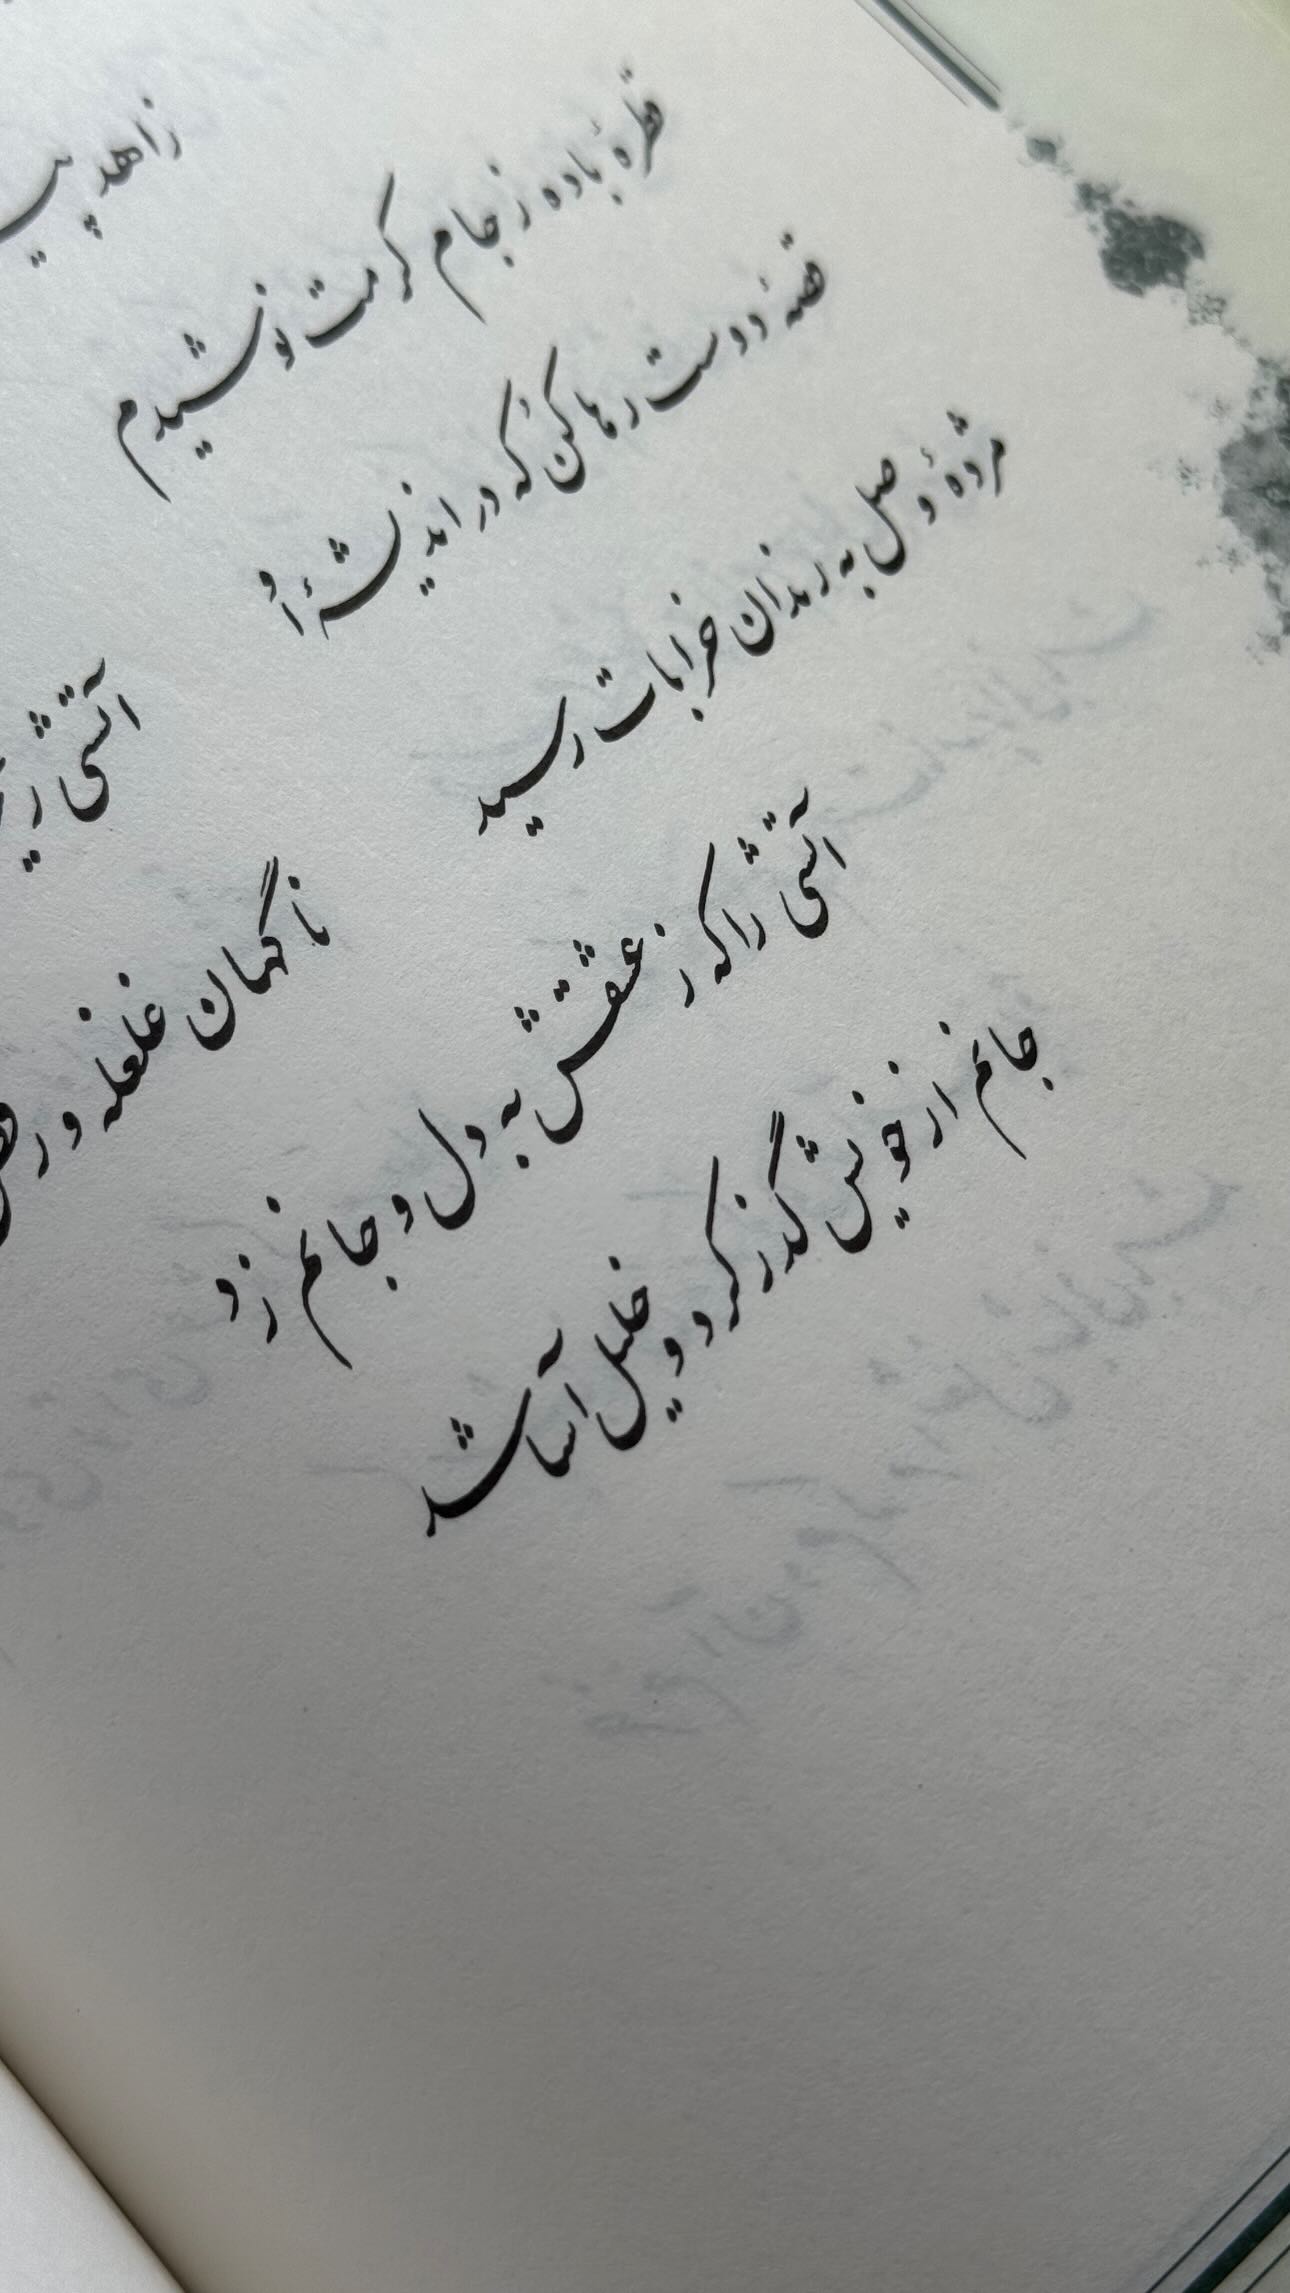 قطرهٔ باده ز جام کرمت نوشیدم
زاهد
قصهٔ دوست رها کن که در اندیشهٔ اُو
مژدهٔ وصل به رندان خرابات رسید
ناگهان غلغله و
آتشی را که ز عشقش به دل و جانم زد
جانم از خویش گذر کرد و خلیل آسا شد
آتشی